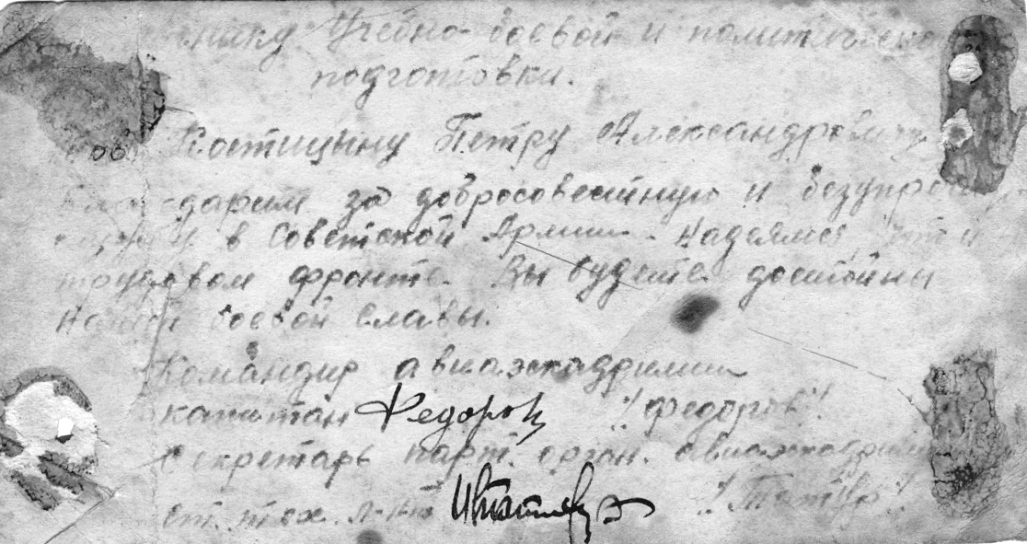 Учебно-боевой и политической
подготовки.
Костицыну Петру Александровичу
за добросовестную и
в Советской Армии. Надеемся, что и
трудовом фронте Вы будете достойны
нашей боевой славы.
Командир авиаэскадрилии
капитан Федоров /Федоров/
Секретарь парт. орган. авиаэскадрилии
ст. тех. л-нт